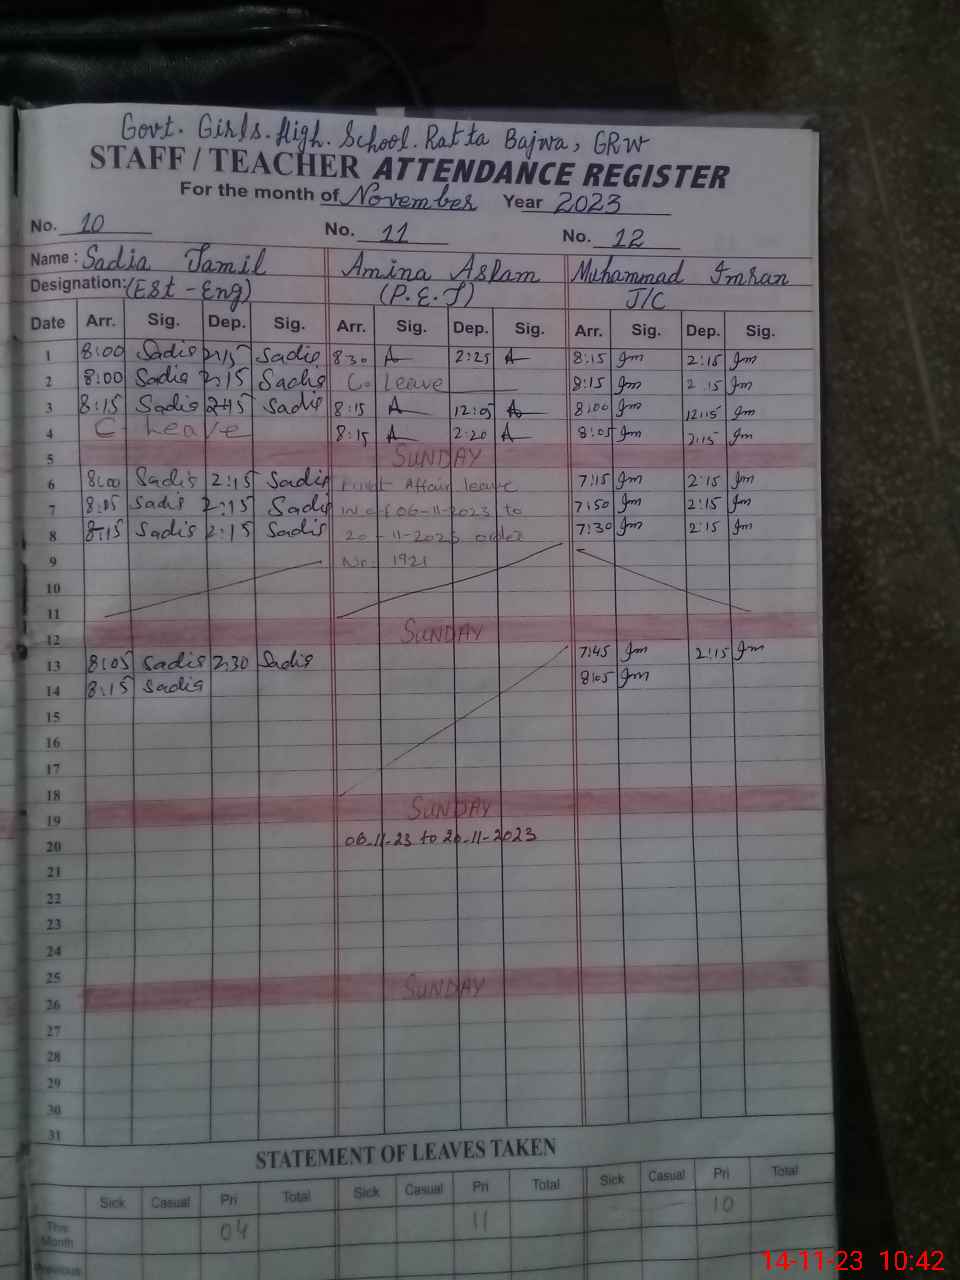 Govt. Girls. High. School. Ratta Bajwa, GRW
STAFF / TEACHER ATTENDANCE REGISTER
For the month of November Year 2023
No. 10 No. 11 No. 12
Name : Sadia Jamil Amina Aslam Muhammad Imran
Designation: (ESt - Eng) (P.E.T) J/C
Date Arr. Sig. Dep. Sig. Arr. Sig. Dep. Sig. Arr. Sig. Dep. Sig.
1 8:00 Sadia 2:15 Sadia 8:30 A 2:25 A 8:15 Im 2:15 Im
2 8:00 Sadia 2:15 Sadia C. Leave 8:15 Im 2:15 Im
3 8:15 Sadia 2:15 Sadia 8:15 A 12:05 A 8:00 Im 12:15 Im
4 C Leave 8:15 A 2:20 A 8:05 Im 2:15 Im
5 SUNDAY
6 8:00 Sadia 2:15 Sadia Affair leave 7:15 Im 2:15 Im
7 8:05 Sadia 2:15 Sadia w.e.f 06-11-2023 to 7:50 Im 2:15 Im
8 8:15 Sadia 2:15 Sadia 20-11-2023 order 7:30 Im 2:15 Im
9 No. 1921
10
11
12 SUNDAY
13 8:05 Sadia 2:30 Sadia 7:45 Im 2:15 Im
14 8:15 Sadia 8:05 Im
15
16
17
18
19 SUNDAY
20 06-11-23 to 20-11-2023
21
22
23
24
25
26 SUNDAY
27
28
29
30
31
STATEMENT OF LEAVES TAKEN
Sick Casual Pri Total Sick Casual Pri Total Sick Casual Pri Total
This Month 04 11 10
Previous
14-11-23 10:42